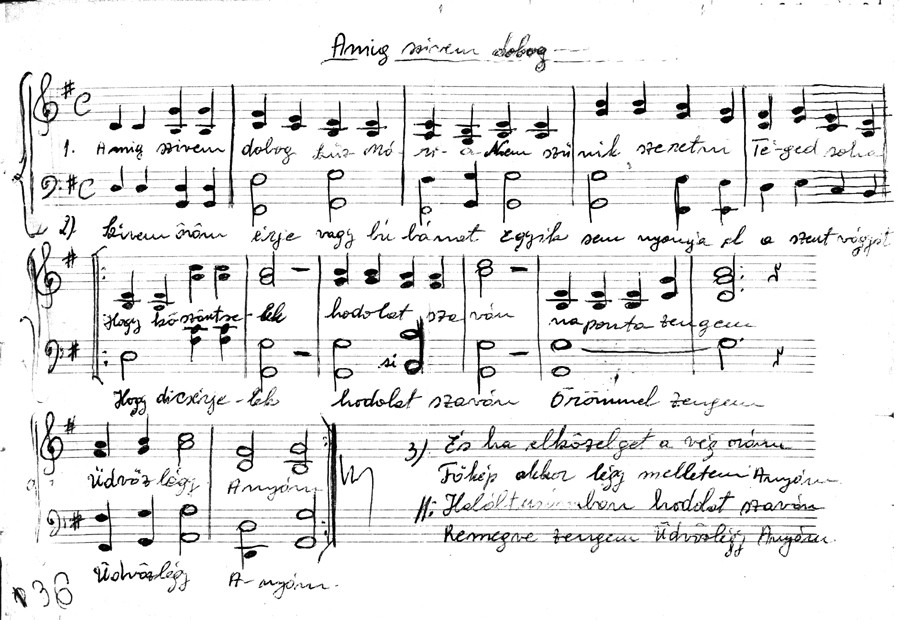 Amig szivem dobog
1. Amig szivem dobog hűz Má-ri-a Nem szű nik szeretni Té-ged soha
2) Szivem öröm érje vagy bú bánat Egyik sem nyomja el a szent vágyat
Hogy köszöntse-lek hodolat szaván naponta zengem
si
Hogy dicsérje-lek hodolat szaván Örömmel zengem
Üdvöz légy Anyám
3) És ha elközelget a vég órám
Főkép akkor légy mellettem Anyám
Üdvözlégy A-nyám.
II: Haláltusámban hodolat szaván
Remegve zengem Üdvözlégy Anyám.
36